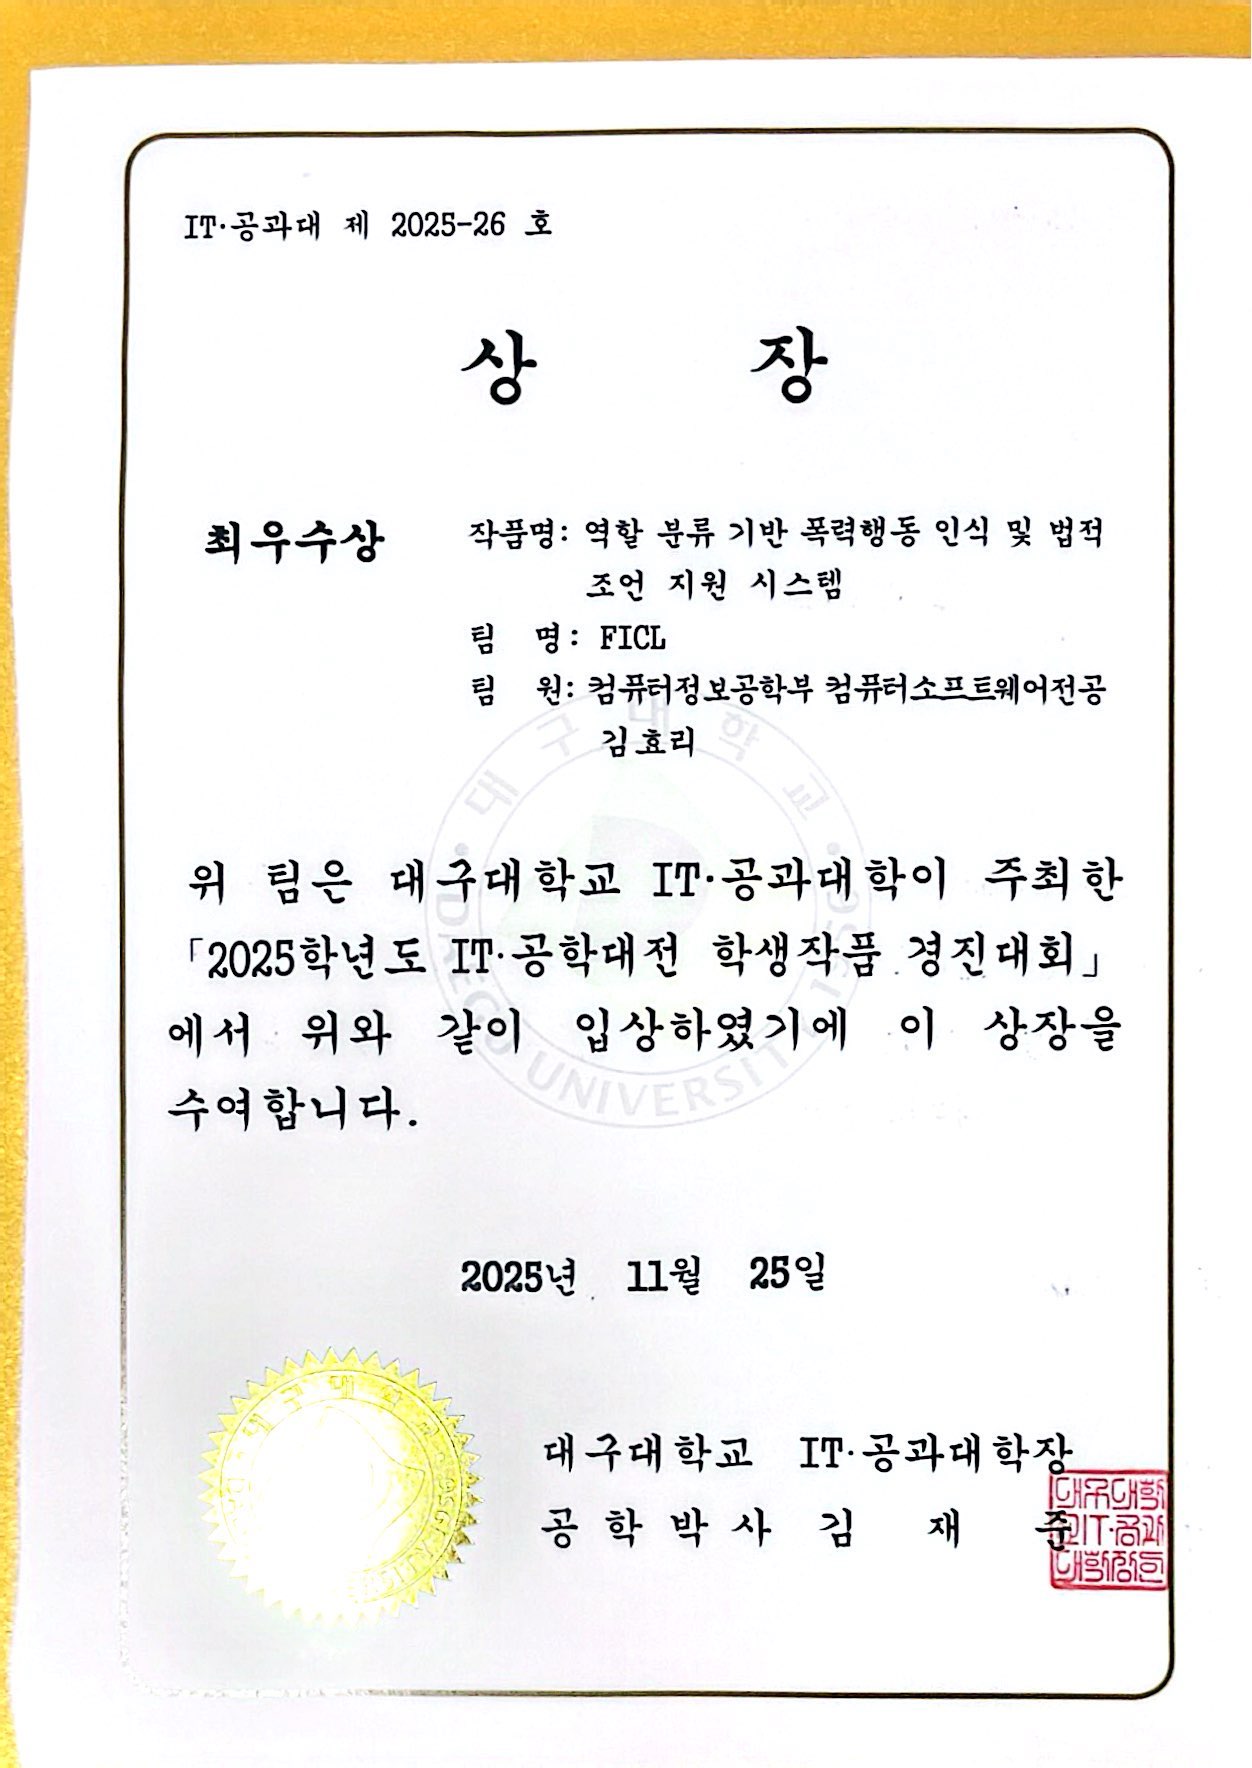 IT·공과대 제 2025-26 호
상 장
최우수상
작품명: 역할 분류 기반 폭력행동 인식 및 법적
조언 지원 시스템
팀 명: FICL
팀 원: 컴퓨터정보공학부 컴퓨터소프트웨어전공
김효리
대구대학교
DAEGU UNIVERSITY 1956
위 팀은 대구대학교 IT·공과대학이 주최한
「2025학년도 IT·공학대전 학생작품 경진대회」
에서 위와 같이 입상하였기에 이 상장을
수여합니다.
2025년 11월 25일
대구대학교
대구대학교 IT·공과대학장
공학박사 김 재 준
대구대학
교IT·공과
대학장인